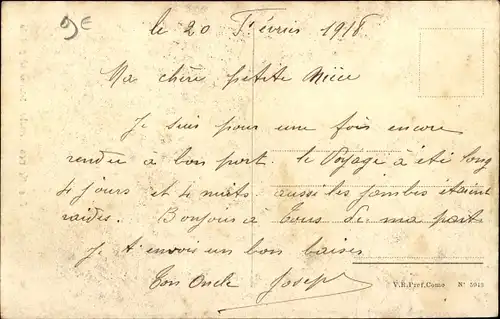 9E
le 20 Février 1918
Ma chère petite Nièce
Je suis pour une fois encore
rendu a bon port. le voyage à été long
4 jours et 4 nuits aussi les jambes étaient
raides. Bonjour a Tous de ma part
Je t'envois un bon baiser
Ton Oncle Joseph
V.R.Prof.Como N° 5945